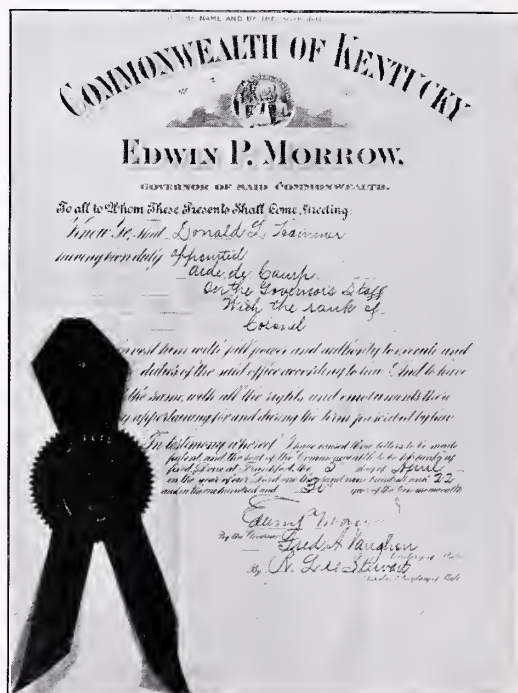 NAME AND BY THE
COMMONWEALTH OF KENTUCKY
EDWIN P. MORROW,
GOVERNOR OF SAID COMMONWEALTH.
To all to Whom These Presents Shall Come, Greeting:
Know Ye, that Donald L.
having been duly appointed
aide de Camp
On the Governor's Staff
With the rank of
Colonel
invest him with full power and authority to execute and
duties of the said office according to law. And to have
the same, with all the rights and emoluments there
appertaining for and during the term prescribed by law
In testimony whereof I have caused these letters to be made
patent, and the seal of the Commonwealth to be hereunto af
fixed. Done at Frankfort, the 3 day of April
in the year of our Lord one thousand nine hundred and 22
and in the one hundred and 30 year of the Commonwealth
Edwin P. Morrow
By the Governor
Fred A Vaughan
Secretary of State
By R. Lee Stewart
Assistant Secretary of State